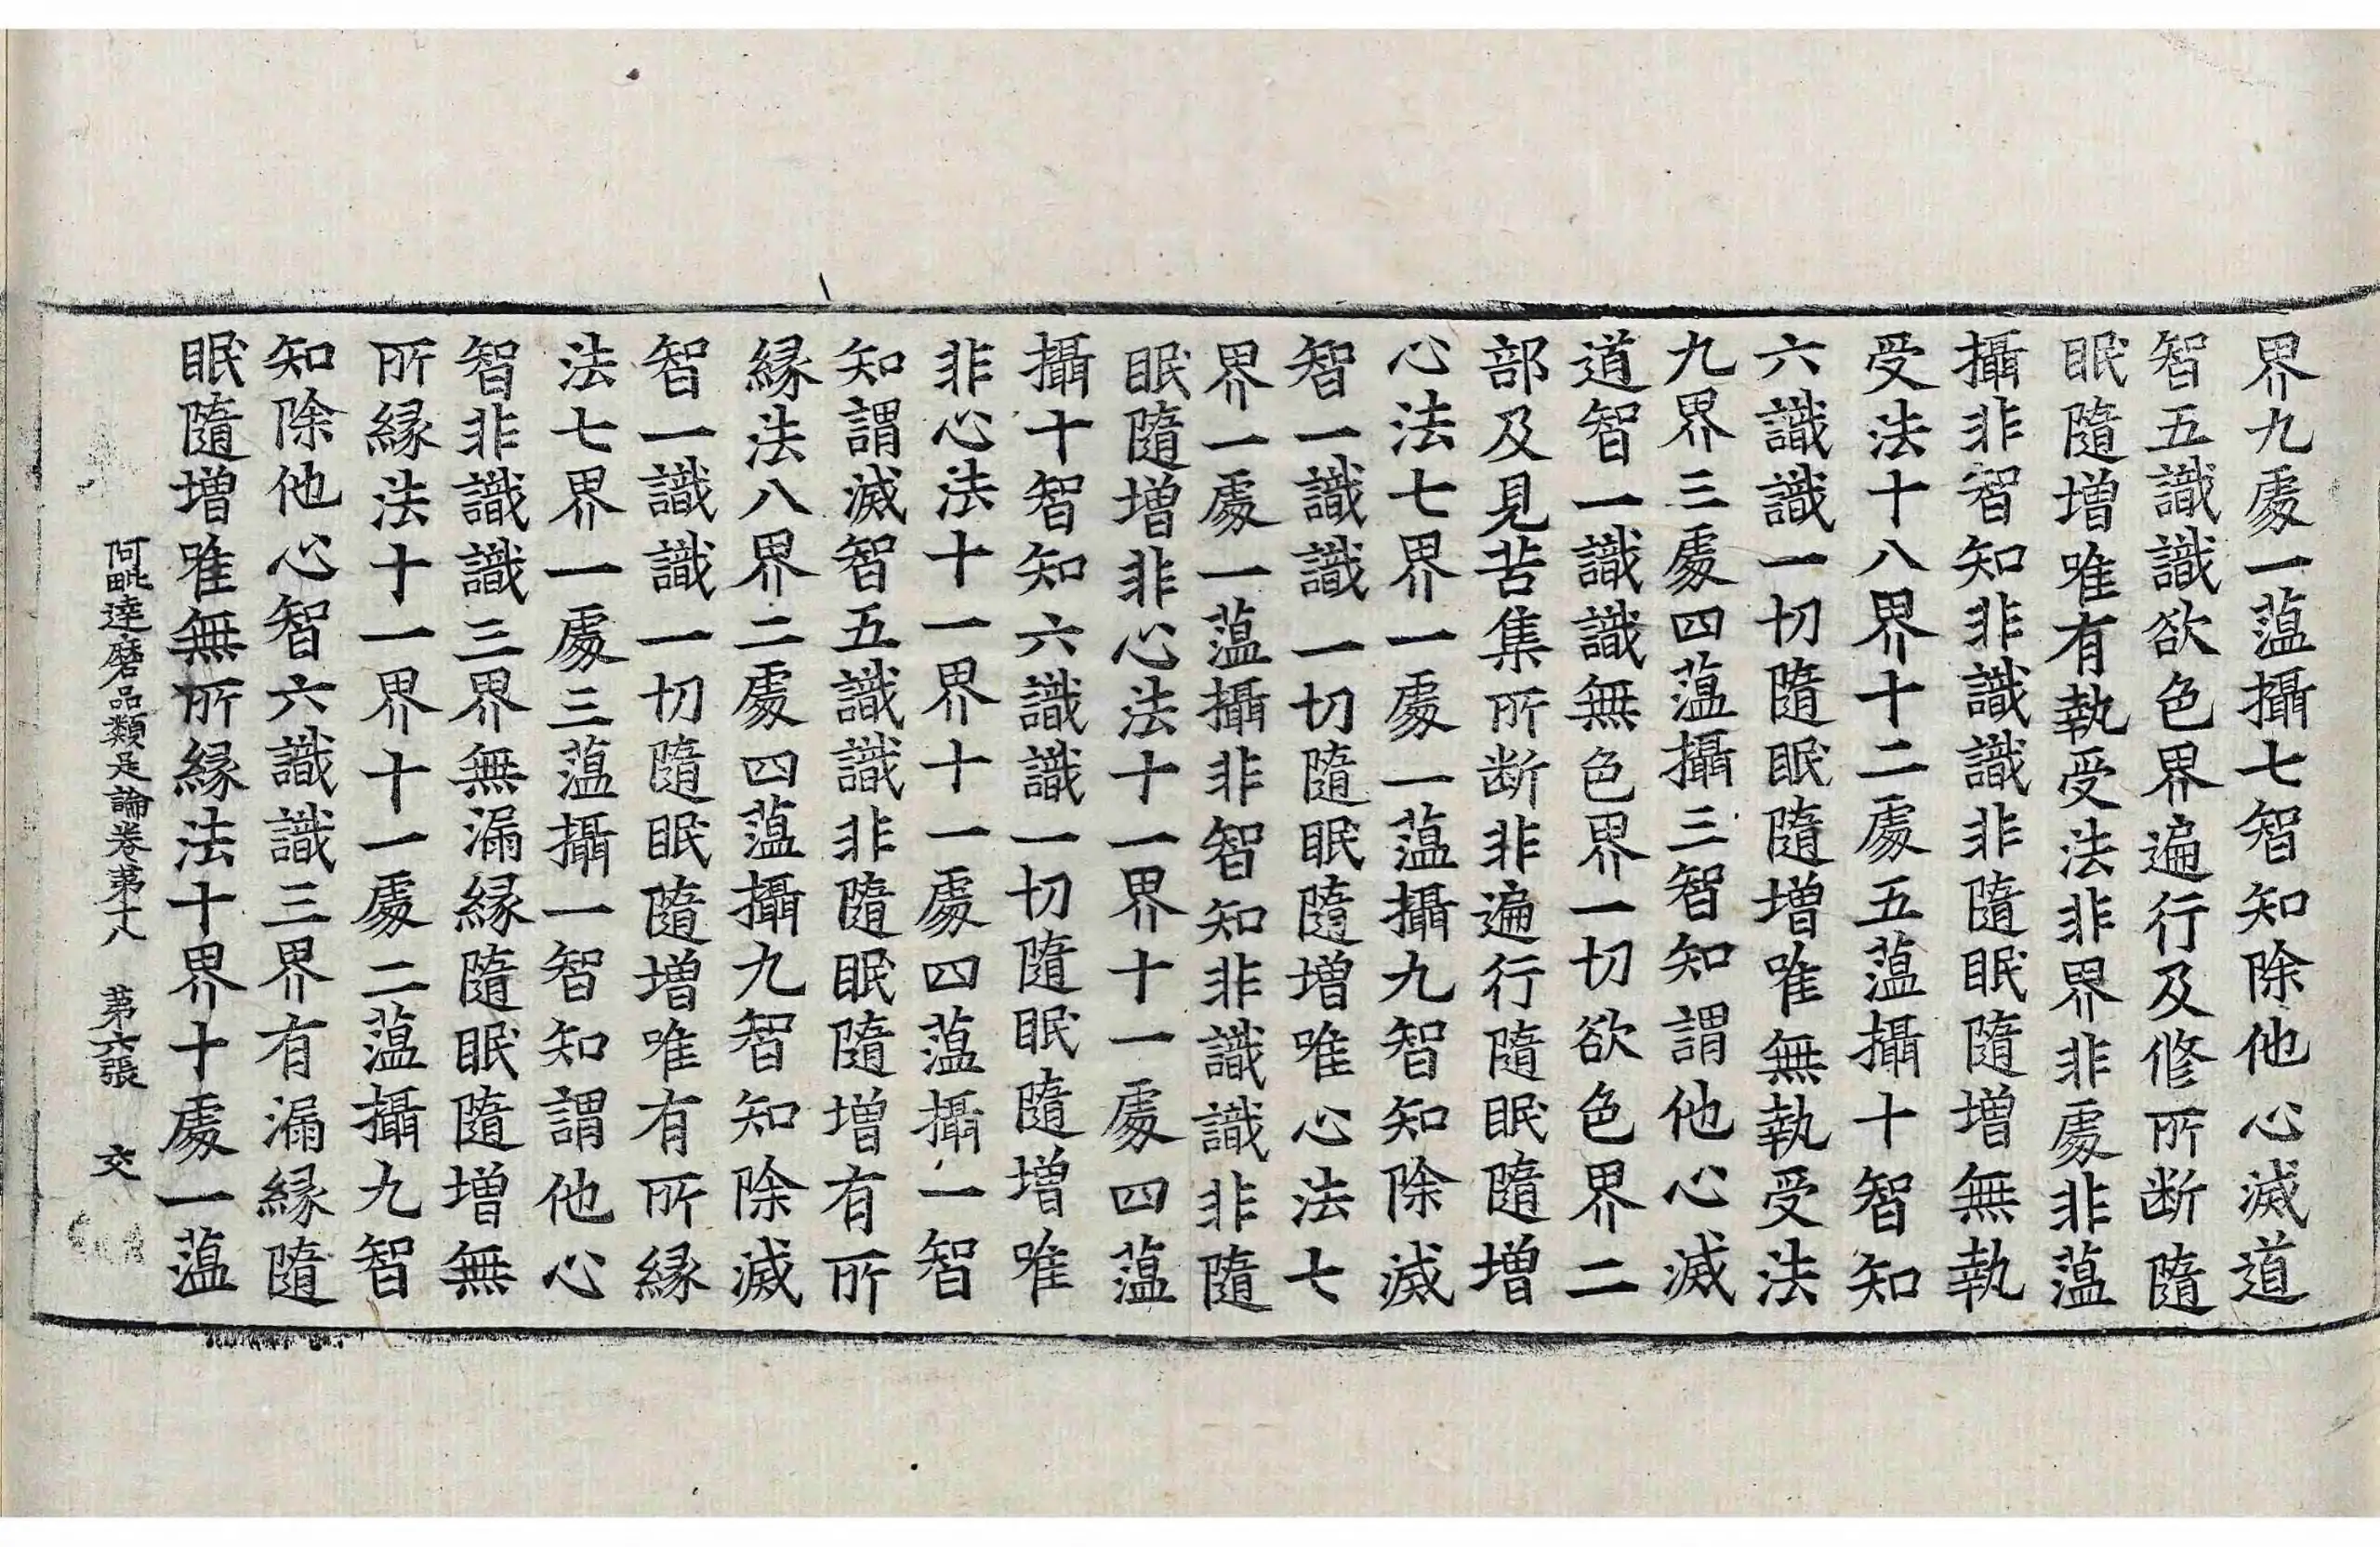 界九處一蕰攝七智知除他心滅道
智五識識欲色界遍行及修所断隨
眠隨増唯有執受法非界非處非蕰
攝非智知非識識非隨眠隨増無執
受法十八界十二處五蕰攝十智知
六識識一切隨眠隨増唯無執受法
九界三處四蕰攝三智知謂他心滅
道智一識識無色界一切欲色界二
部及見苦集所断非遍行隨眠隨増
心法七界一處一蕰攝九智知除滅
智一識識一切隨眠隨増唯心法七
界一處一蕰攝非智知非識識非隨
眠隨増非心法十一界十一處四蕰
攝十智知六識識一切隨眠隨増唯
非心法十一界十一處四蕰攝一智
知謂滅智五識識非隨眠隨増有所
縁法八界二處四蕰攝九智知除滅
智一識識一切隨眠隨増唯有所縁
法七界一處三蕰攝一智知謂他心
智非識識三界無漏縁隨眠隨増無
所縁法十一界十一處二蕰攝九智
知除他心智六識識三界有漏縁隨
眠隨増唯無所縁法十界十處一蕰
阿毗達磨品類足論卷第十八　第六張　交